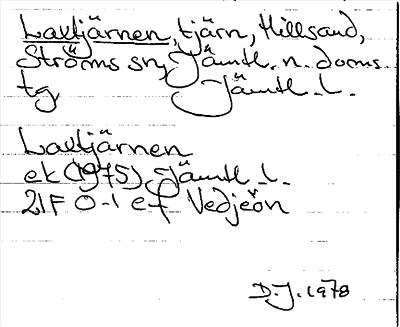 Laxtjärnen, tjärn, Hillsand,
Ströms sn, Jämtl. n. doms
tg, Jämtl. l.
Laxtjärnen
ek (1975) Jämtl. l.
21F 0-1 e f Vedjeön
D.J. 1978